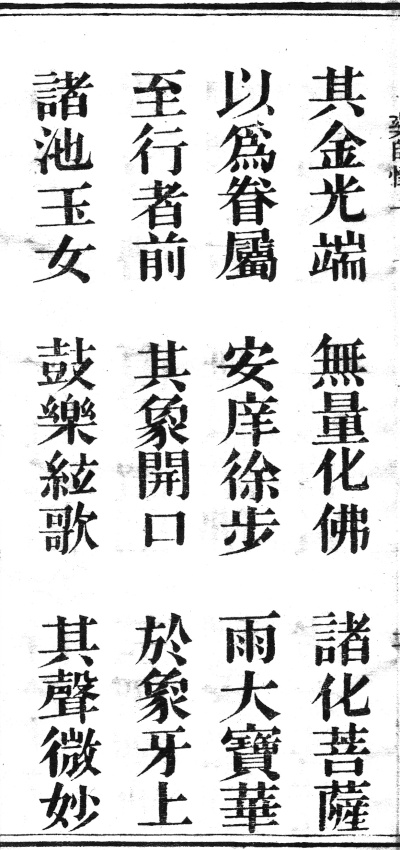 其金光端　無量化佛　諸化菩薩
以為眷屬　安庠徐步　雨大寶華
至行者前　其象開口　於象牙上
諸池玉女　鼓樂絃歌　其聲微妙